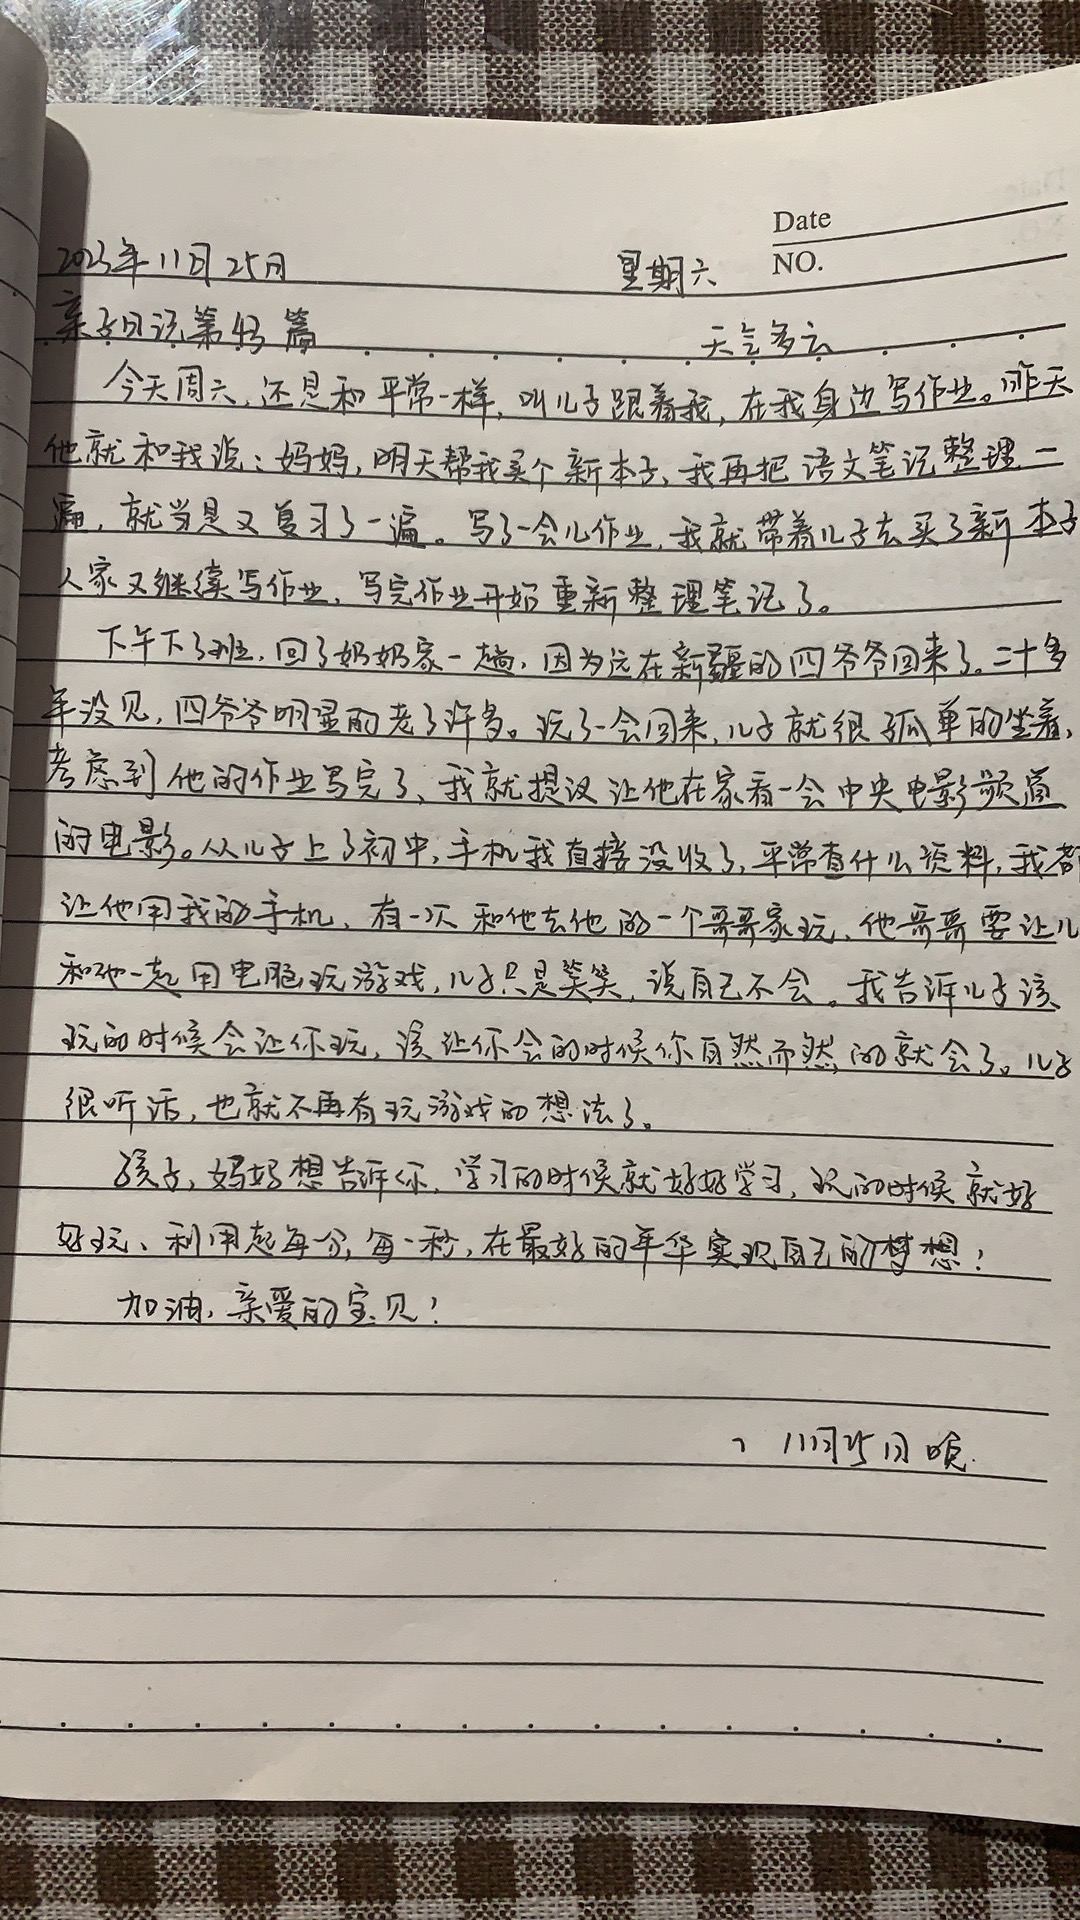 Date
2023年11月25日 星期六 NO.
亲子日记第43篇 天气多云
今天周六,还是和平常一样,叫儿子跟着我,在我身边写作业。昨天
他就和我说:妈妈,明天帮我买个新本子,我再把语文笔记整理一
遍,就当是又复习了一遍。写了一会儿作业,我就带着儿子去买了新本子
人家又继续写作业,写完作业开始重新整理笔记了。
下午下了班,回了奶奶家一趟,因为远在新疆的四爷爷回来了。二十多
年没见,四爷爷明显的老了许多。玩了一会回来,儿子就很孤单的坐着,
考虑到他的作业写完了,我就提议让他在家看一会中央电影频道
的电影。从儿子上了初中,手机我直接没收了,平常查什么资料,我都
让他用我的手机,有一次和他去他的一个哥哥家玩,他哥哥要让儿
和他一起用电脑玩游戏,儿子只是笑笑,说自己不会。我告诉儿子该
玩的时候会让你玩,该让你会的时候你自然而然的就会了。儿子
很听话,也就不再有玩游戏的想法了。
孩子,妈妈想告诉你,学习的时候就好好学习,玩的时候就好
好玩、利用起每一分,每一秒,在最好的年华实现自己的梦想!
加油,亲爱的宝贝!
11月25日晚.